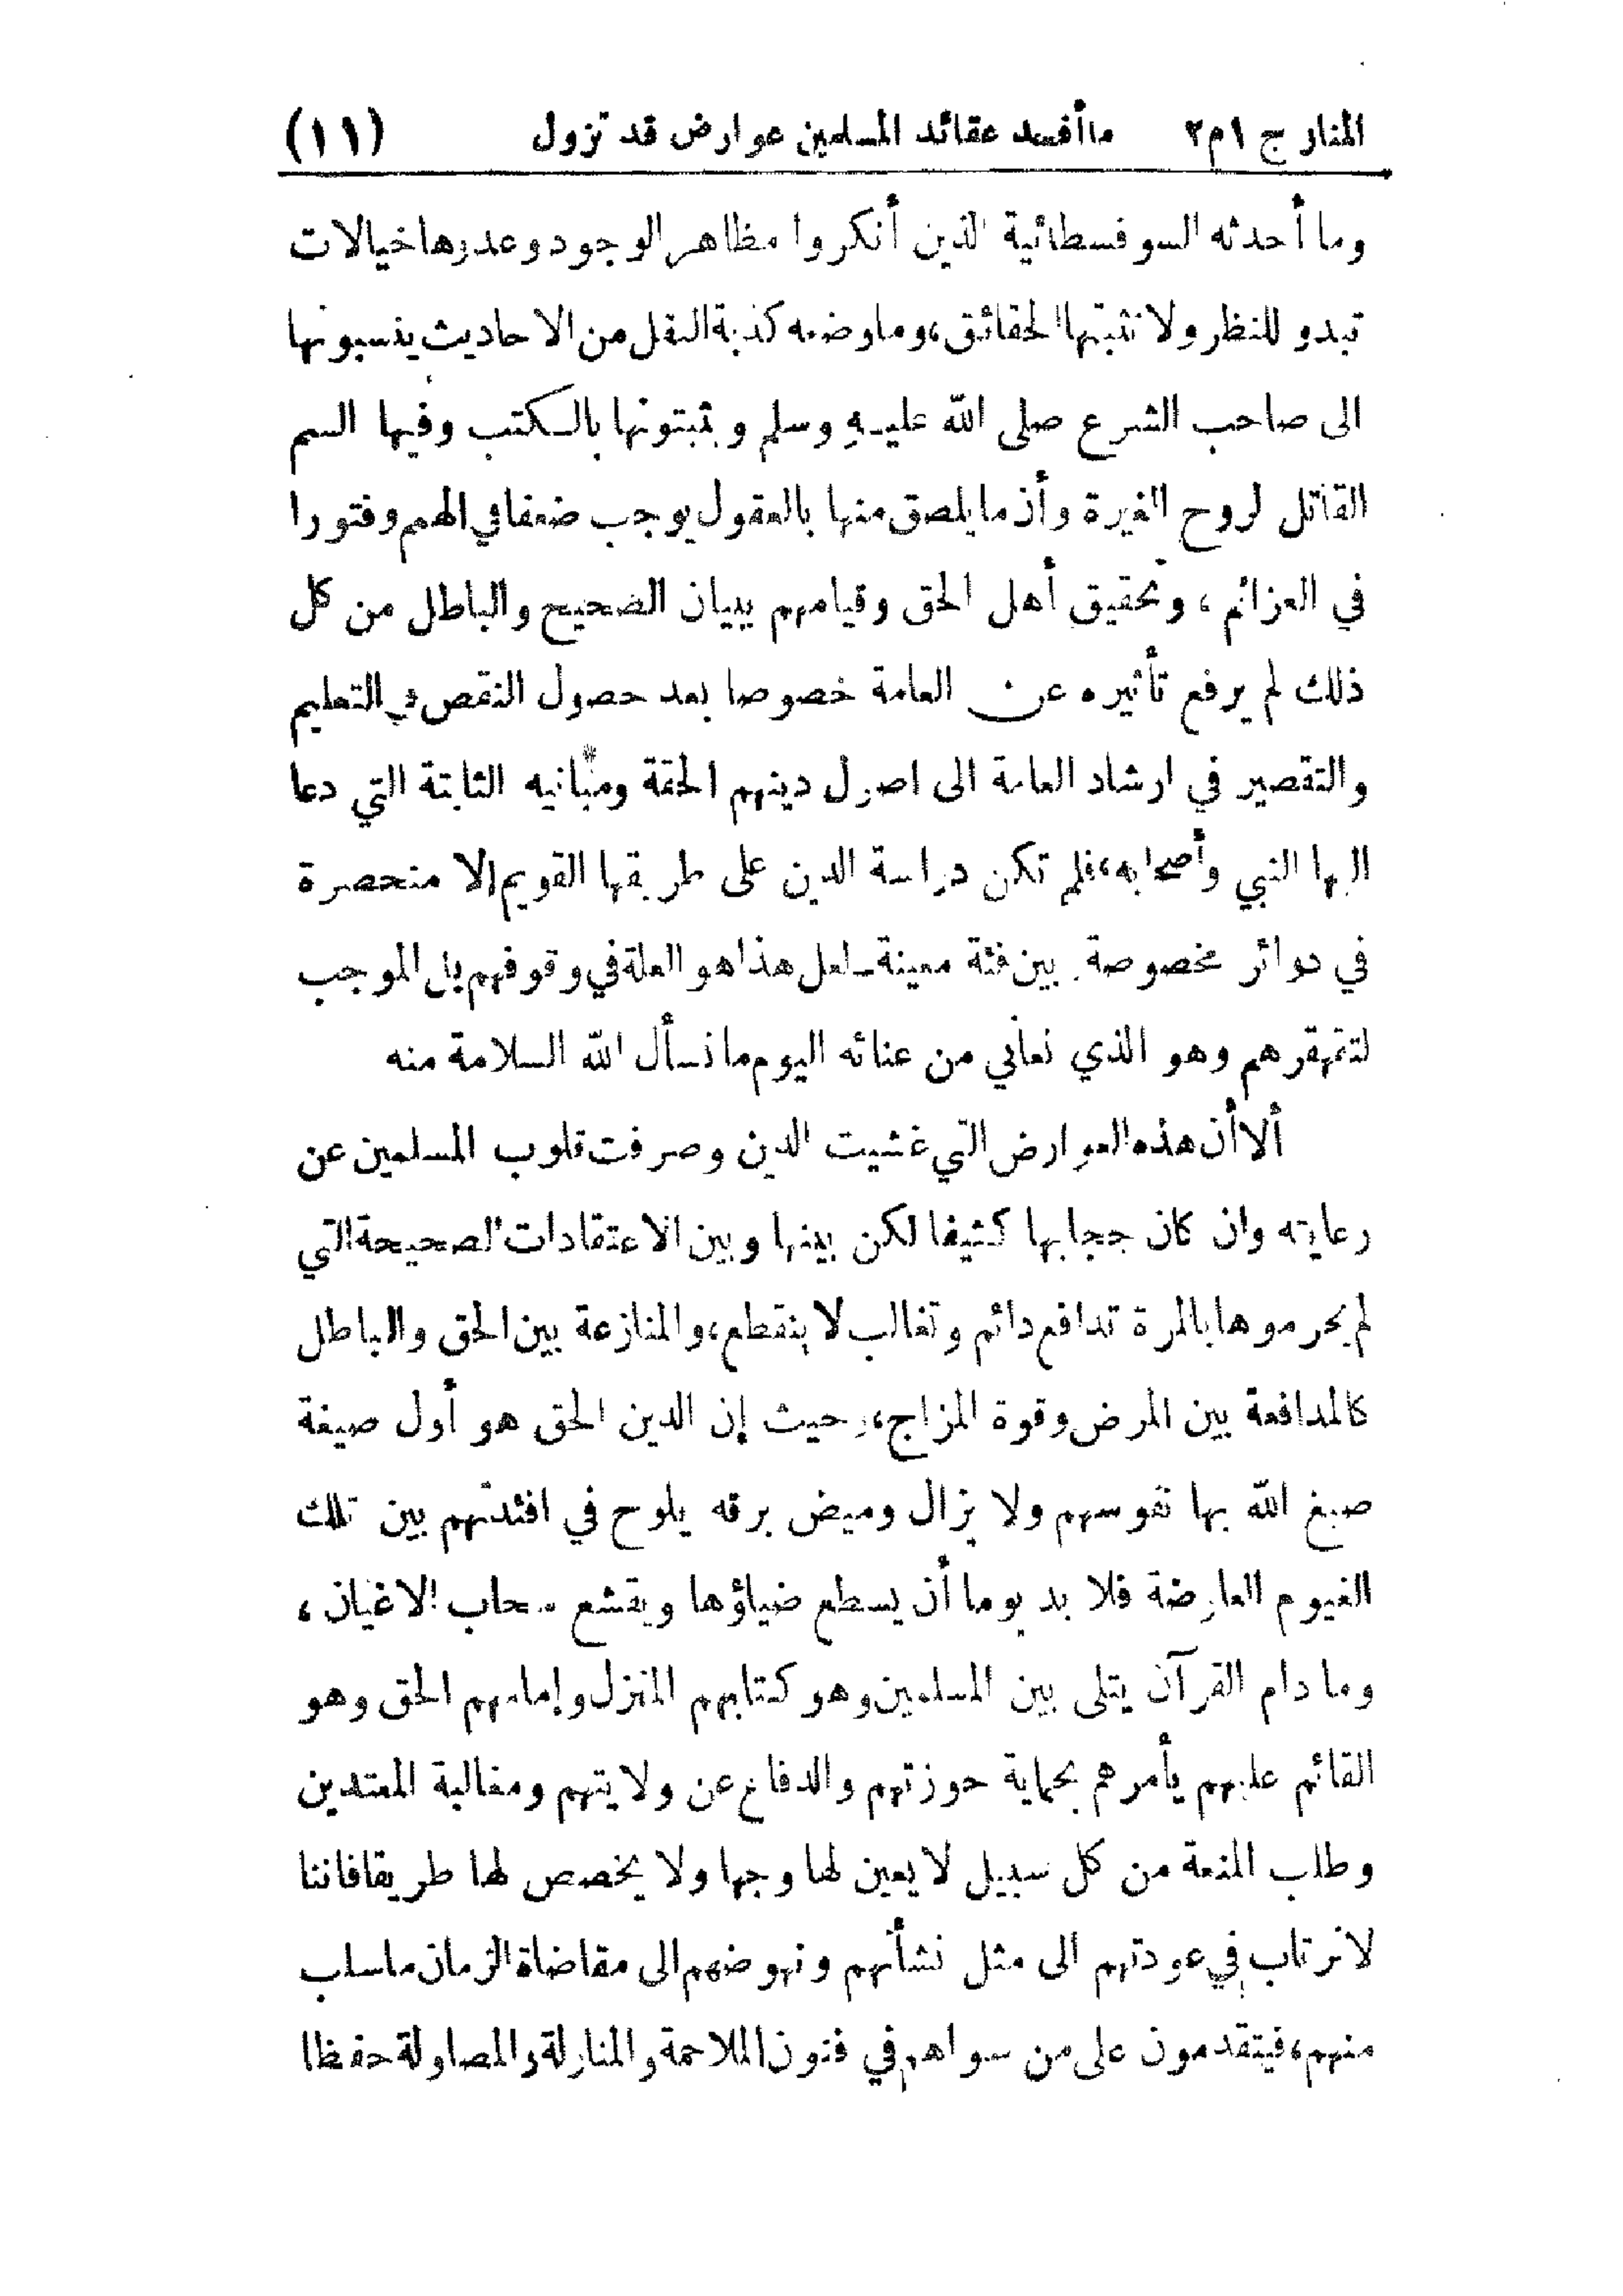 المنار ج ١ م ٢ ما أفسد عقائد المسلمين عوارض قد تزول (١١)
وما أحدثه السوفسطائية الذين أنكروا مظاهر الوجود وعدوها خيالات
تبدو للنظر ولا تثبتها الحقائق، وما وضعه كذبة النقل من الاحاديث ينسبونها
الى صاحب الشرع صلى الله عليه وسلم ويثبتونها بالكتب وفيها السم
القاتل لروح الغيرة وأن ما يلصق منها بالعقول يوجب ضعفا في الهمم وفتورا
في العزائم ، وتحقيق أهل الحق وقيامهم ببيان الصحيح والباطل من كل
ذلك لم يرفع تأثيره عن العامة خصوصا بعد حصول النقص في التعليم
والتقصير في ارشاد العامة الى اصول دينهم الحقة ومبانيه الثابتة التي دعا
اليها النبي وأصحابه، فلم تكن دراسة الدين على طريقها القويم إلا منحصرة
في دوائر مخصوصة بين فئة معينة ــ لعل هذا هو العلة في وقوفهم بل الموجب
لتقهقرهم وهو الذي نعاني من عنائه اليوم ما نسأل الله السلامة منه
ألا أن هذه العوارض التي غشيت الدين وصرفت قلوب المسلمين عن
رعايته وان كان حجابها كثيفا لكن بينها وبين الاعتقادات الصحيحة التي
لم يحرموها بالمرة تدافع دائم وتغالب لا ينقطع، والمنازعة بين الحق والباطل
كالمدافعة بين المرض وقوة المزاج، وحيث إن الدين الحق هو أول صبغة
صبغ الله بها نفوسهم ولا يزال وميض برقه يلوح في افئدتهم بين تلك
الغيوم العارضة فلا بد يوما أن يسطع ضياؤها ويقشع سحاب الاغيان ،
وما دام القرآن يتلى بين المسلمين وهو كتابهم المنزل وإمامهم الحق وهو
القائم عليهم يأمرهم بحماية حوزتهم والدفاع عن ولايتهم ومغالبة المعتدين
وطلب المنعة من كل سبيل لا يعين لها وجها ولا يخصص لها طريقا فاننا
لا نرتاب في عودتهم الى مثل نشأتهم ونهوضهم الى مقاضاة الزمان ما سلب
منهم، فيتقدمون على من سواهم في فنون الملاحمة والمنازلة والمصاولة حفظا